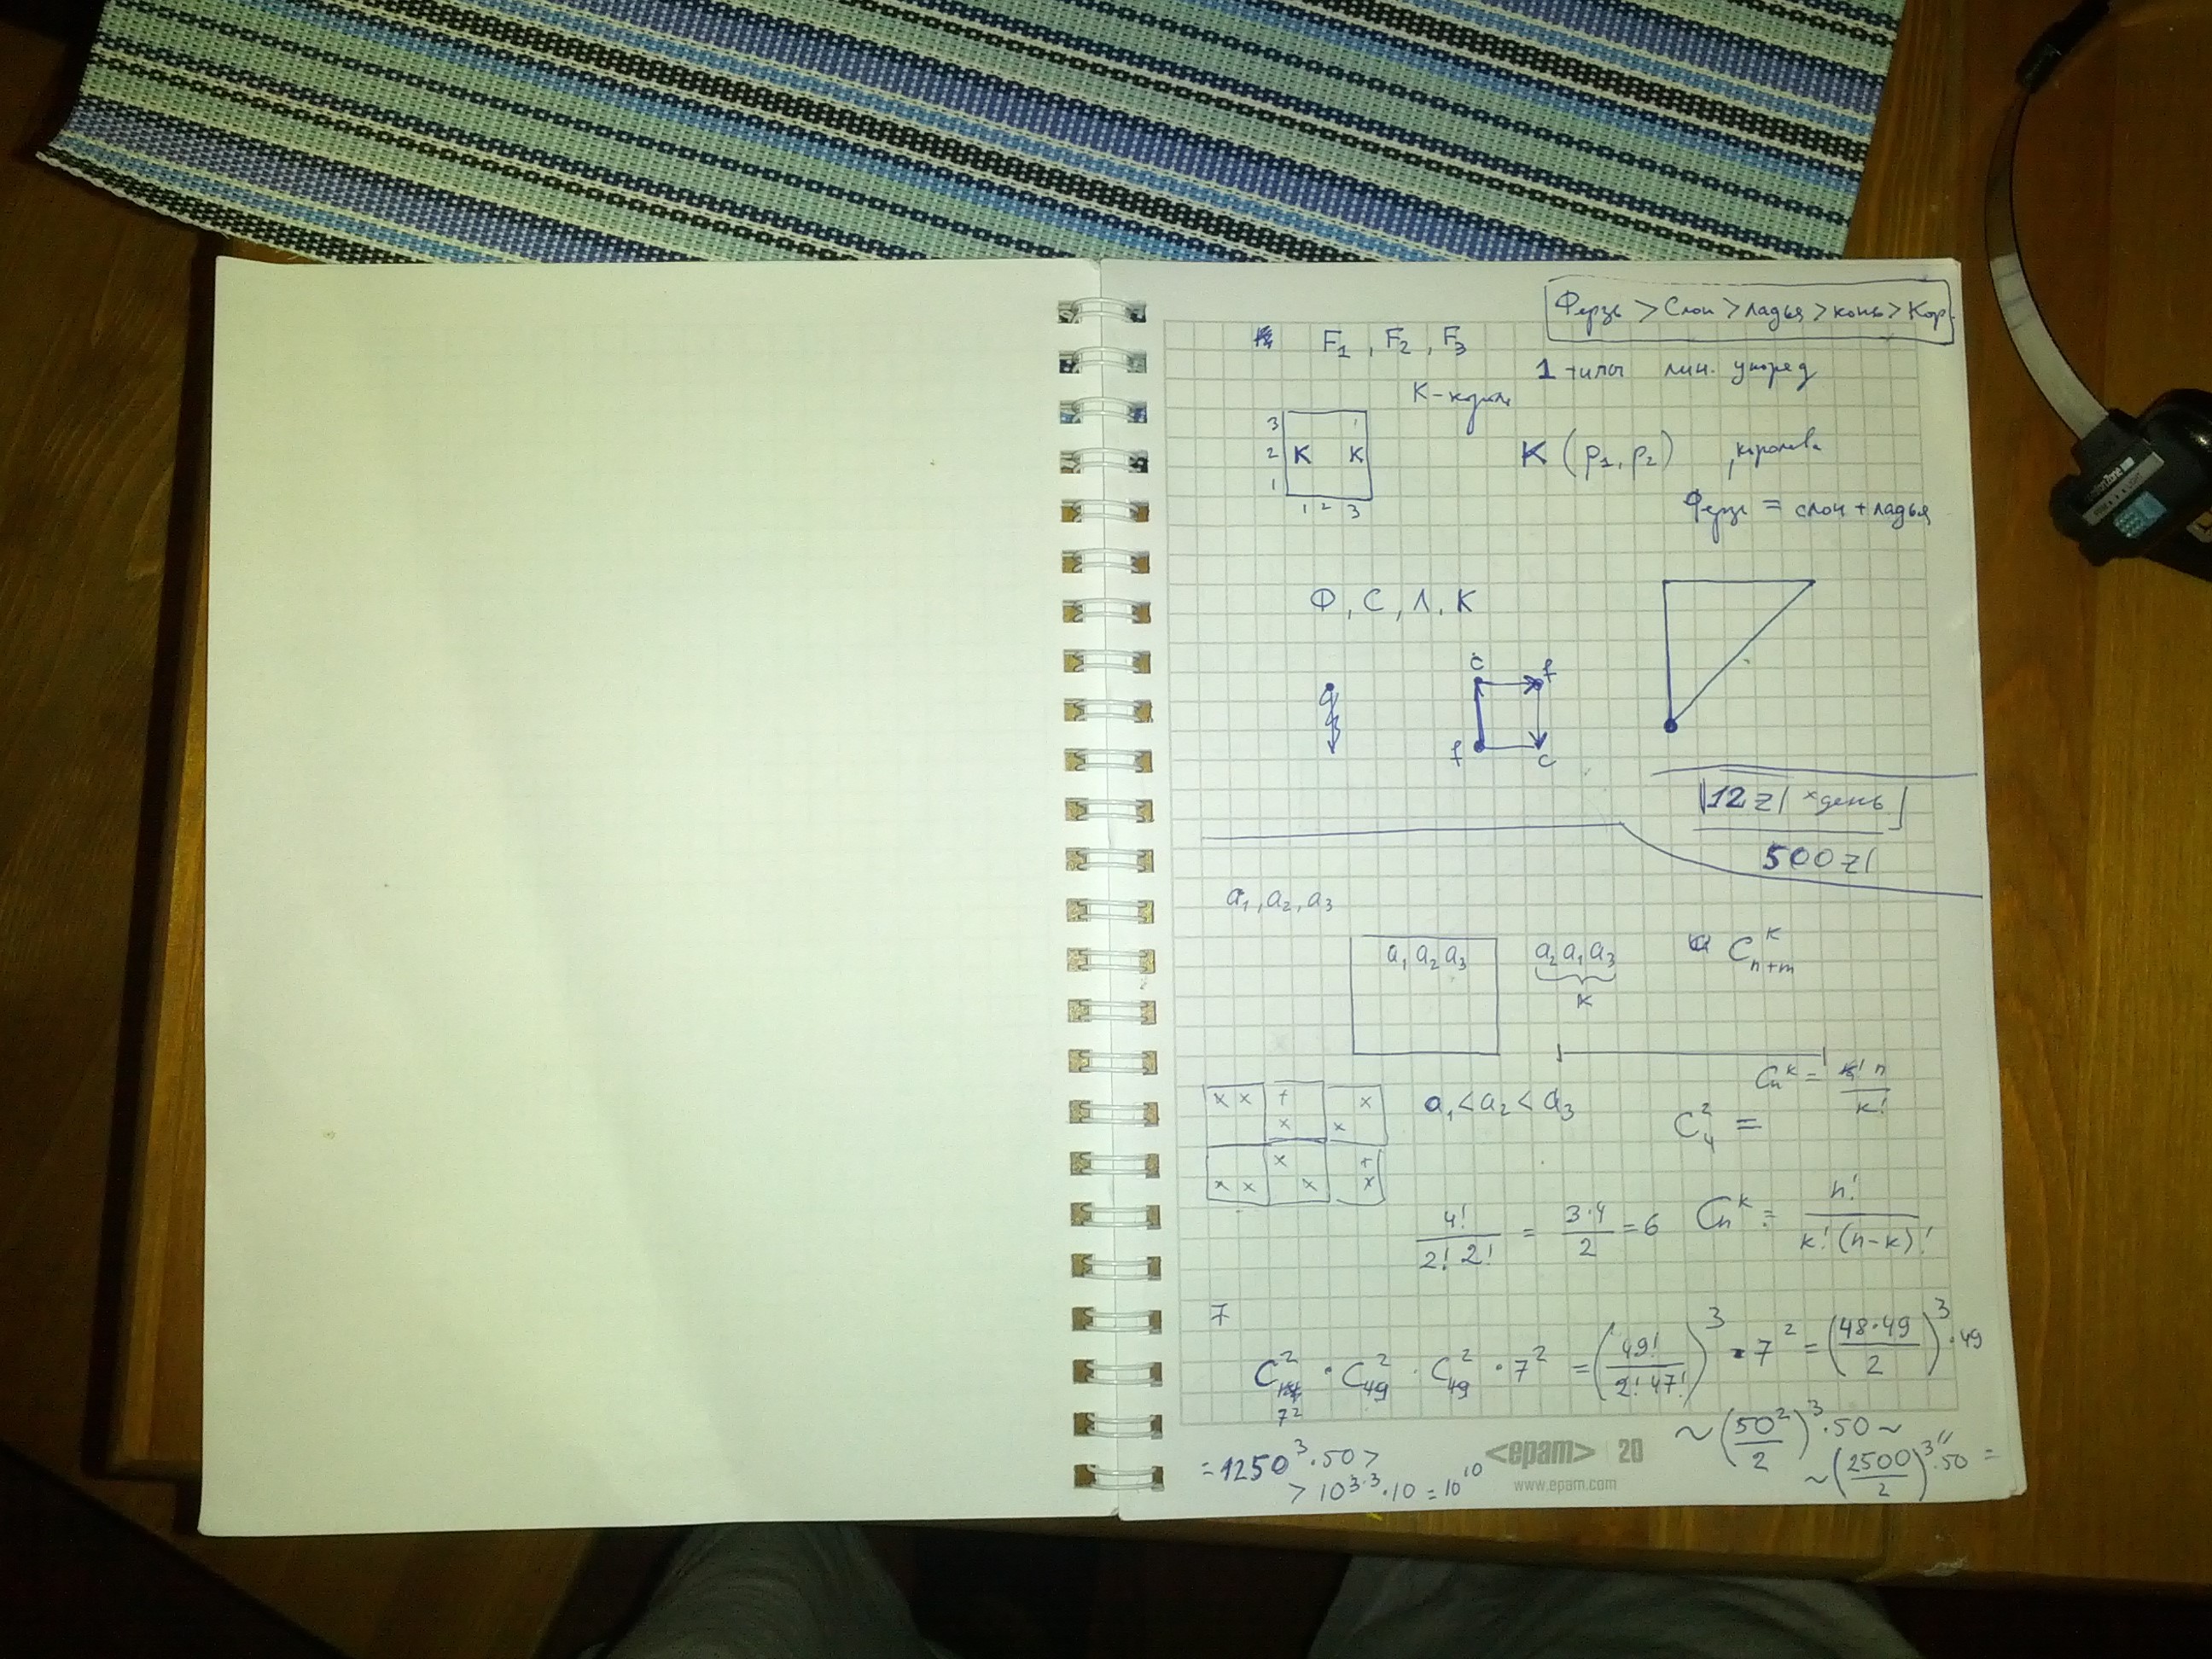 Ферзь > Слон > ладья > конь > Кор.
F₁, F₂, F₃
1 типы лин. упоряд
K - король
3
2 K K
1
1 2 3
K (p₁, p₂) королева
Ферзь = слон + ладья
Ф, С, Л, К
c f
f c
12 zł × день
500 zł
a₁, a₂, a₃
a₁ a₂ a₃
a₂ a₁ a₃
k
C_{n+m}^k
x x + x
x x
x x x x + x
a₁ < a₂ < a₃
C_n^k = n / k!
C_4^2 =
4! / (2! 2!) = 3·4 / 2 = 6
C_n^k = n! / (k! (n-k)!)
7
C_{7²}^2 · C_{49}^2 · C_{49}^2 · 7² = (49! / (2! 47!))³ · 7² = (48·49 / 2)³ · 49
~ (50² / 2)³ · 50 ~
~ (2500 / 2)³ · 50 =
= 1250³ · 50 >
> 10^{3·3} · 10 = 10^{10}
<epam> 20
www.epam.com